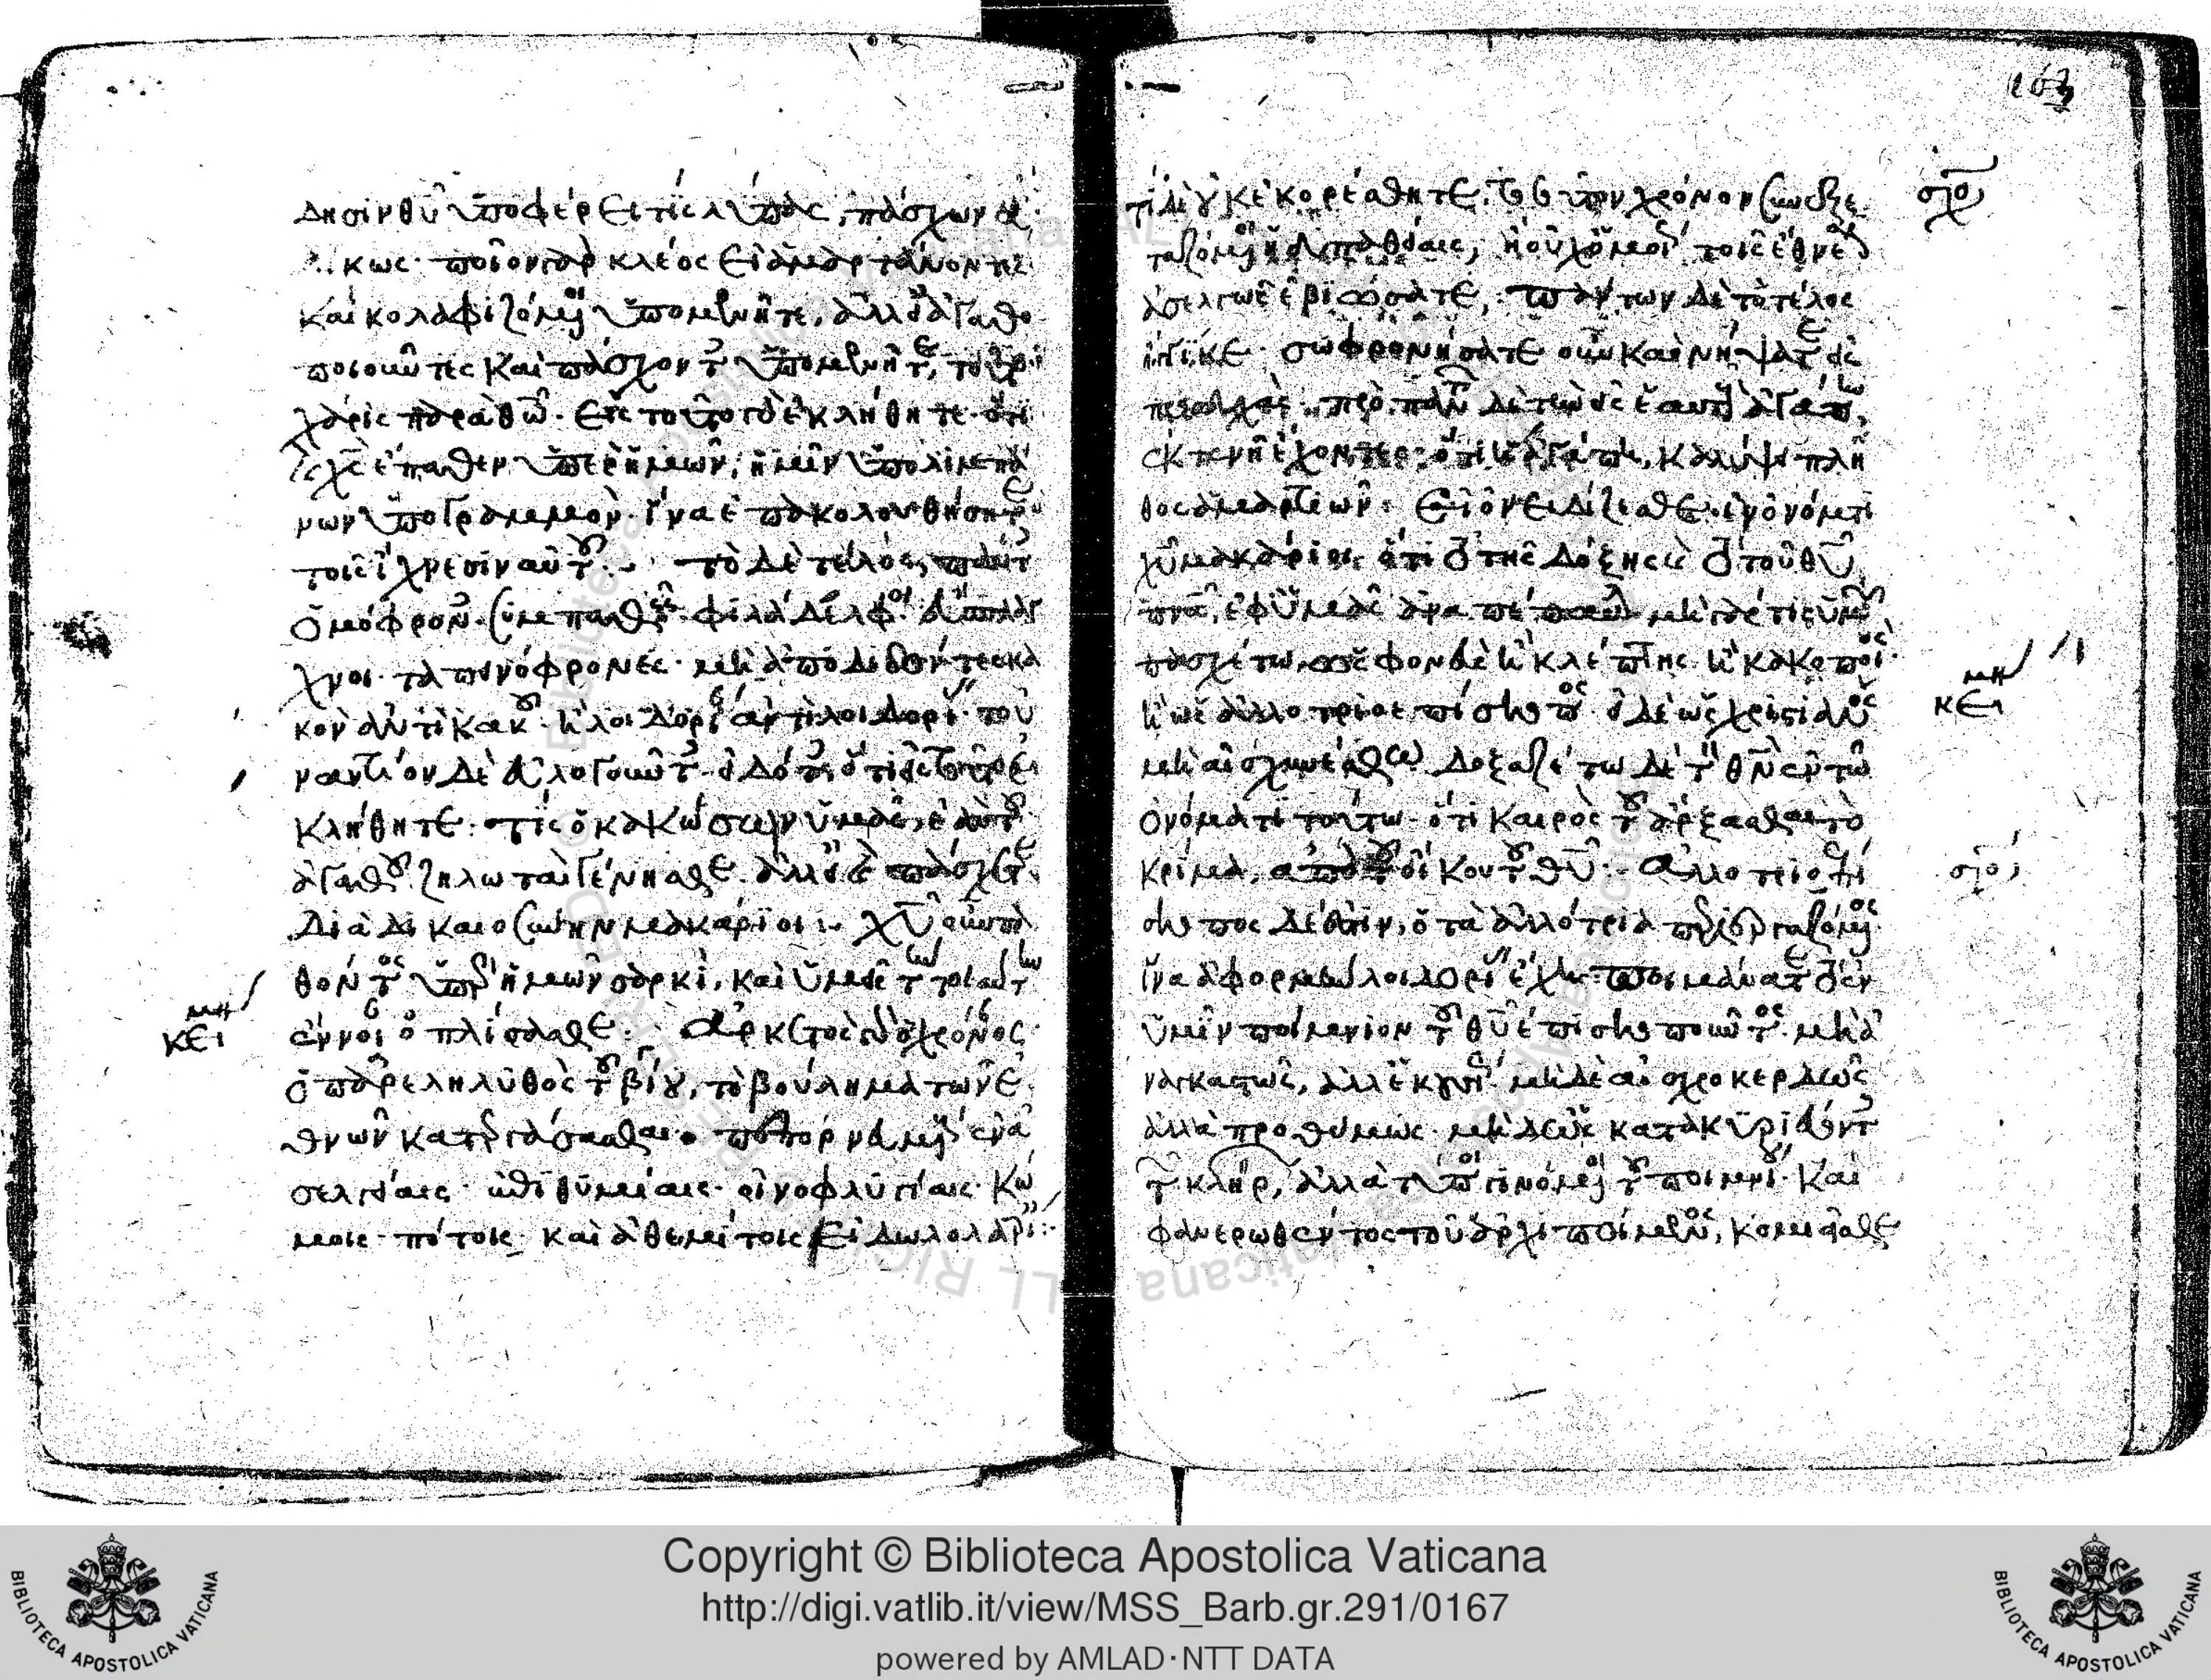 δησιν θυ υποφέρει τις λύπας, πάσχων ἀ
κως. ποῖον γὰρ κλέος εἰ ἁμαρτάνοντες
καὶ κολαφιζόμενοι ὑπομενεῖτε, ἀλλ' εἰ ἀγαθο
ποιοῦντες καὶ πάσχοντες ὑπομενεῖτε, τοῦτο
χάρις παρὰ θω. εἰς τοῦτο γὰρ ἐκλήθητε. ὅτι
χς ἔπαθεν ὑπὲρ ἡμῶν, ἡμῖν ὑπολιμπά
νων ὑπογραμμὸν. ἵνα ἐπακολουθήσητε
τοῖς ἴχνεσιν αὐτοῦ. τὸ δὲ τέλος, πάντες
ὁμόφρονες. συμπαθεῖς. φιλάδελφοι. εὔσπλαγ
χνοι. ταπεινόφρονες. μὴ ἀποδιδόντες κα
κὸν ἀντὶ κακοῦ. ἢ λοιδορίαν ἀντὶ λοιδορίας. του
ναντίον δὲ εὐλογοῦντες. εἰδότες ὅτι εἰς τοῦτο
κλήθητε. τίς ὁ κακώσων ὑμᾶς, ἐὰν τοῦ
ἀγαθοῦ ζηλωταὶ γένησθε. ἀλλ' εἰ πάσχετε
διὰ δικαιοσύνην μακάριοι. χυ οὖν πα
θόντος ὑπὲρ ἡμῶν σαρκὶ, καὶ ὑμεῖς τὴν αὐτὴν
ἔννοιαν ὁπλίσασθε. ἀρκετὸς γὰρ ὁ χρόνος
ὁ παρεληλυθὸς τοῦ βίου, τὸ βούλημα τῶν ἐ
θνῶν κατεργάσασθαι. πεπορευμένοις ἐν ἀ
σελγείαις. ἐπιθυμίαις. οἰνοφλυγίαις. κώ
μοις. πότοις. καὶ ἀθεμίτοις εἰδωλολατρίαις
μη
κει
163
τί δὲ οὐ κεκορέσθητε.
ἀσελγῶς ἐβιώσατε, πάντων δὲ τὸ τέλος
ἤγγικε. σωφρονήσατε οὖν καὶ νήψατε εἰς
προσευχάς. πρὸ πάντων δὲ τὴν εἰς ἑαυτοὺς ἀγάπην
ἐκτενῆ ἔχοντες. ὅτι ἡ ἀγάπη, καλύψει πλῆ
θος ἁμαρτιῶν. εἰ ὀνειδίζεσθε ἐν ὀνόματι
χυ μακάριοι, ὅτι τὸ τῆς δόξης καὶ τὸ τοῦ θυ
πνα, ἐφ' ὑμᾶς ἀναπέπαυται. μὴ γάρ τις ὑμῶν
πασχέτω ὡς φονεὺς ἢ κλέπτης ἢ κακοποιός
ἢ ὡς ἀλλοτριοεπίσκοπος. εἰ δὲ ὡς χριστιανὸς
μὴ αἰσχυνέσθω. δοξαζέτω δὲ τὸν θν ἐν τῷ
ὀνόματι τούτω. ὅτι καιρὸς τοῦ ἄρξασθαι τὸ
κρίμα, ἀπὸ τοῦ οἴκου τοῦ θυ. ἀλλοτριοεπί
σκοπος δέ ἐστιν, ὁ τὰ ἀλλότρια περιεργαζόμενος
ἵνα ἀφορμὴν λοιδορίας ἔχῃ. ποιμάνατε τὸ ἐν
ὑμῖν ποίμνιον τοῦ θυ ἐπισκοποῦντες. μὴ ἀ
ναγκαστῶς, ἀλλ' ἑκουσίως. μηδὲ αἰσχροκερδῶς
ἀλλὰ προθύμως. μηδὲ ὡς κατακυριεύοντες
τῶν κλήρων, ἀλλὰ τύποι γινόμενοι τοῦ ποιμνίου. καὶ
φανερωθέντος τοῦ ἀρχιποίμενος, κομιεῖσθε
σχο
μη
κει
σχο
Copyright © Biblioteca Apostolica Vaticana
http://digi.vatlib.it/view/MSS_Barb.gr.291/0167
powered by AMLAD·NTT DATA
BIBLIOTECA APOSTOLICA VATICANA
BIBLIOTECA APOSTOLICA VATICANA